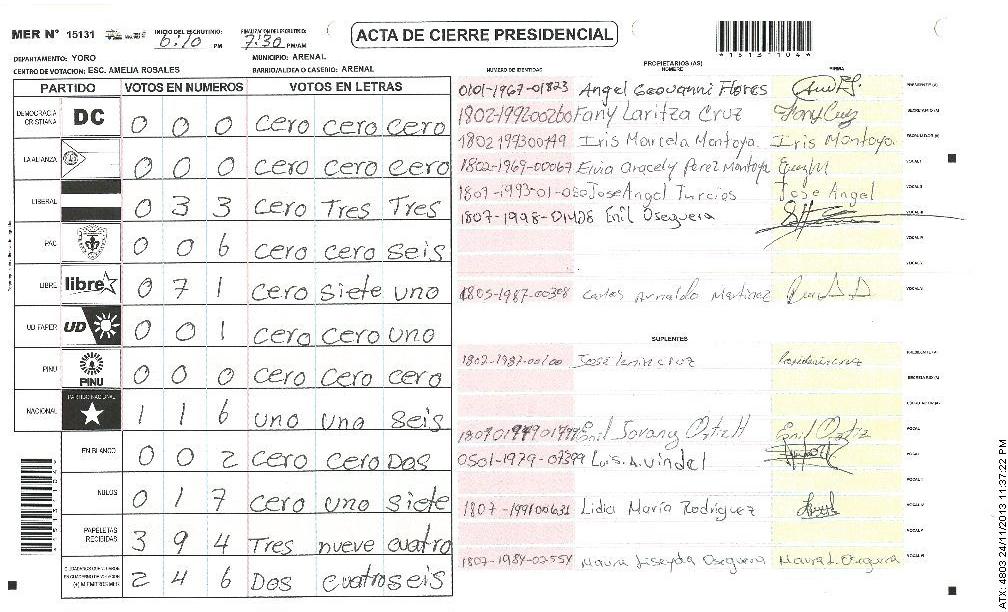 MER N° 15131 INICIO DEL ESCRUTINIO: 6:10 PM FINALIZACION DEL ESCRUTINIO: 7:30 PM/AM ACTA DE CIERRE PRESIDENCIAL *151311044*
DEPARTAMENTO: YORO MUNICIPIO: ARENAL
CENTRO DE VOTACION: ESC. AMELIA ROSALES BARRIO/ALDEA O CASERIO: ARENAL
PARTIDO VOTOS EN NUMEROS VOTOS EN LETRAS
DEMOCRACIA CRISTIANA DC 0 0 0 cero cero cero
LA ALIANZA 0 0 0 cero cero cero
LIBERAL 0 3 3 cero Tres Tres
PAC 0 0 6 cero cero seis
LIBRE libre 0 7 1 cero siete uno
UD FAPER UD 0 0 1 cero cero uno
PINU PINU 0 0 0 cero cero cero
NACIONAL PARTIDO NACIONAL 1 1 6 uno uno seis
EN BLANCO 0 0 2 cero cero Dos
NULOS 0 1 7 cero uno siete
PAPELETAS RECIBIDAS 3 9 4 Tres nueve cuatro
(+) MIEMTROS MER 2 4 6 Dos cuatro seis
PROPIETARIOS (AS)
NUMERO DE IDENTIDAD NOMBRE FIRMA
0101-1967-01823 Angel Geovanni Flores PRESIDENTE (A)
1802-199200260 Fany Laritza Cruz Fany Cruz SECRETARIO (A)
1802199300149 Iris Marcela Montoya Iris Montoya ESCRUTADOR (A)
1802-1969-00067 Elvia aracely Perez Montoya VOCAL I
1807-1993-01-080 Jose Angel Turcios Jose Angel VOCAL II
1807-1998-01408 Enil Oseguera VOCAL III
VOCAL IV
VOCAL V
1805-1987-00398 Carlos Arnaldo Martinez VOCAL VI
SUPLENTES
1802-1987-00100 Jose cruz PRESIDENTE (A)
SECRETARIO (A)
ESCRUTADOR (A)
Enil Jovany Ortiz H Enil Ortiz VOCAL I
0501-1979-07399 Luis.A.Vindel VOCAL II
VOCAL III
1807-199100631 Lidia María Rodríguez VOCAL IV
VOCAL V
1807-1984-02554 Maura Liseyda Oseguera Maura L.Oseguera VOCAL VI
ATX: 4803 24/11/2013 11:37:22 PM